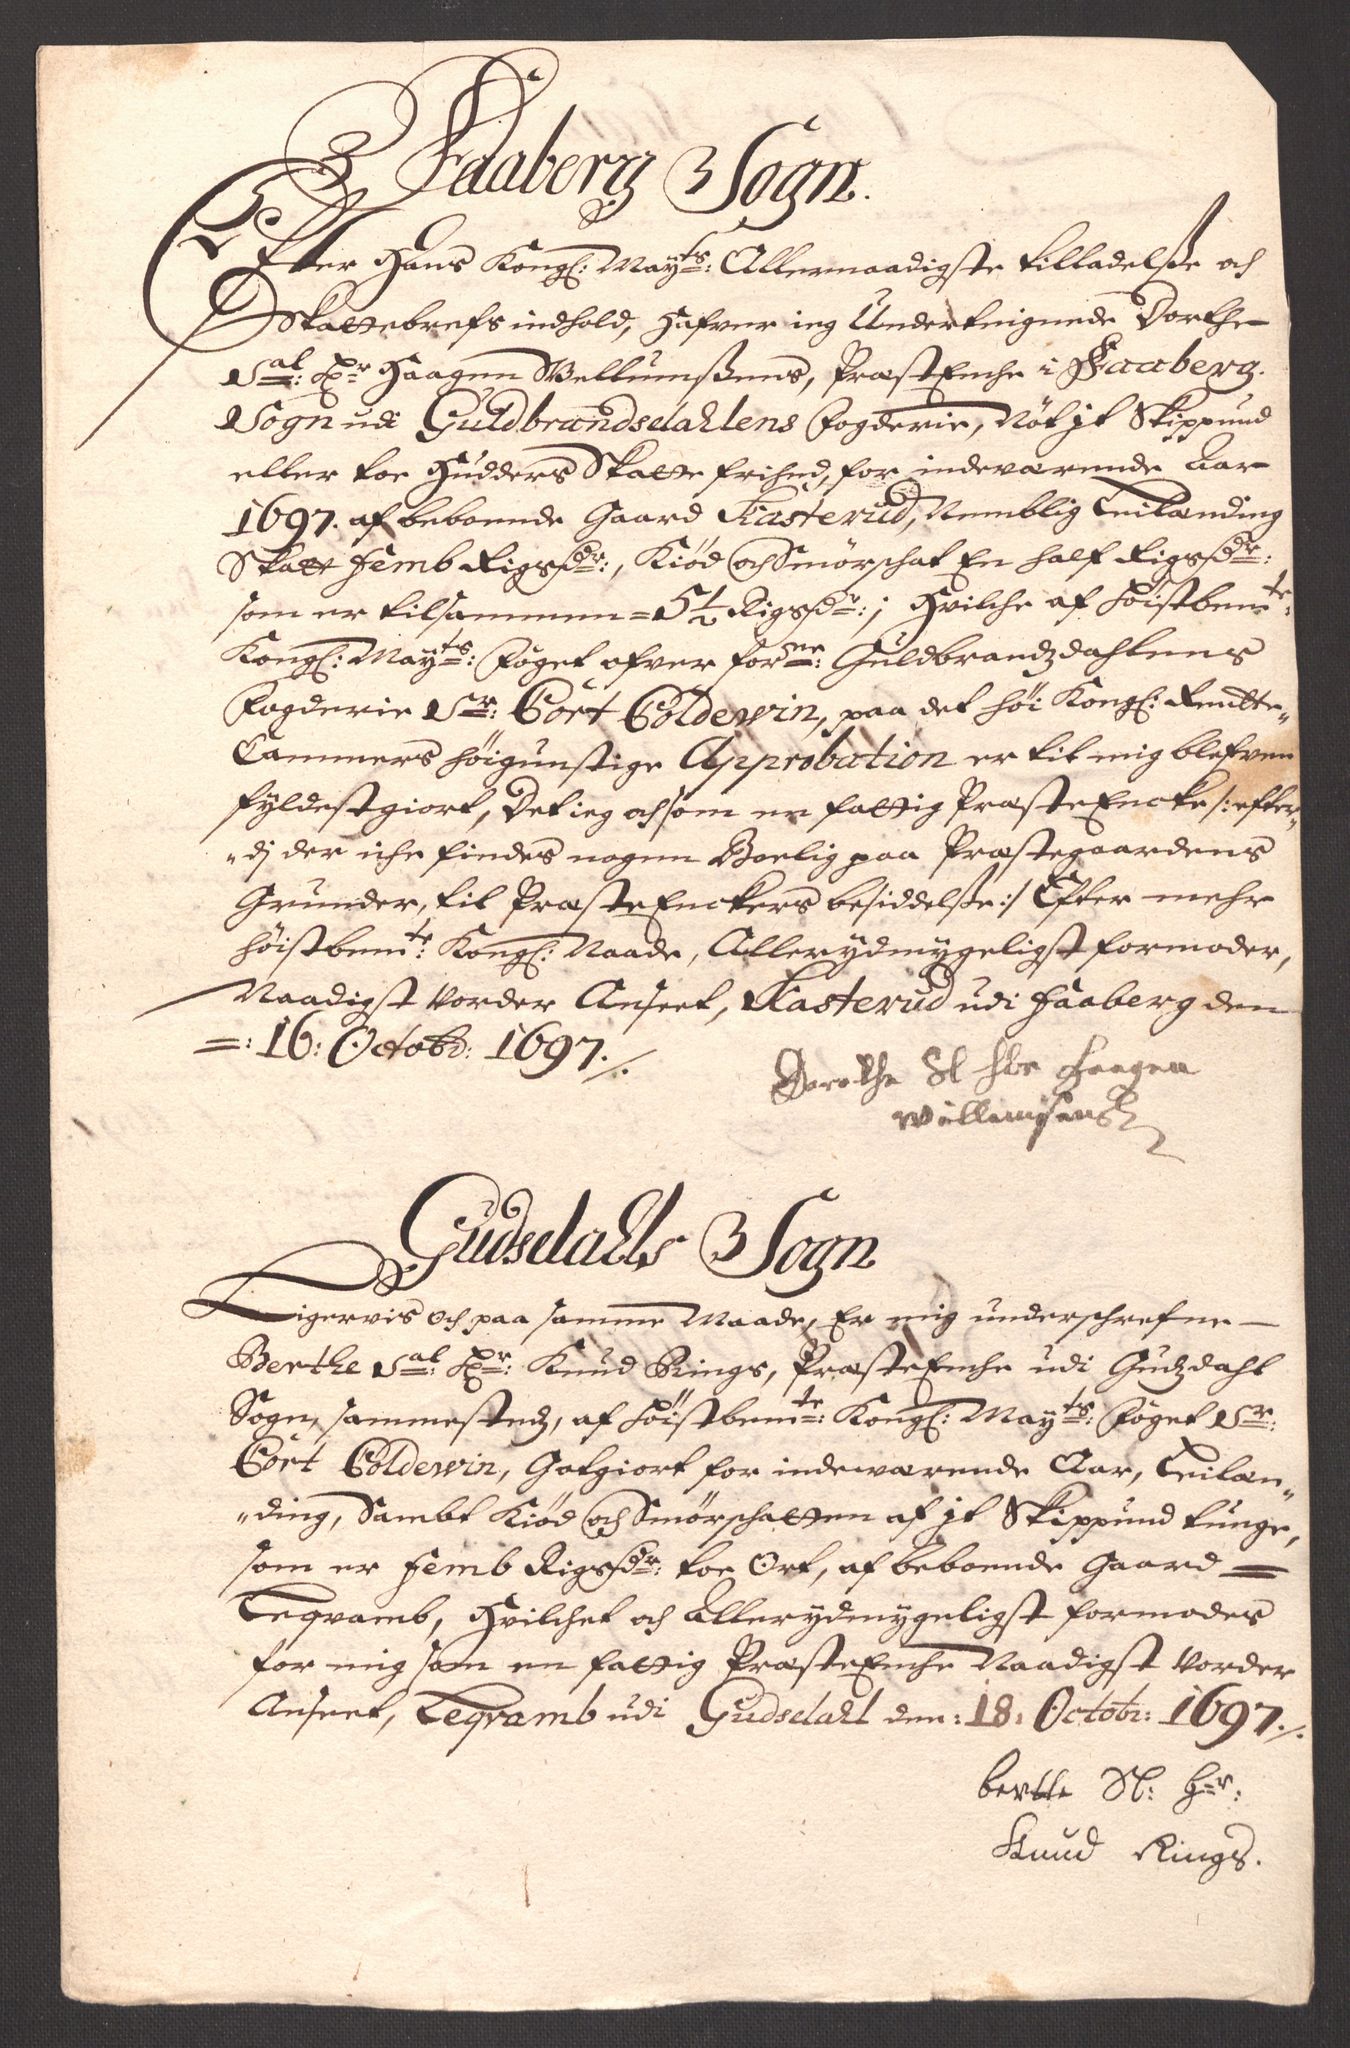 Faaberg Sogn.
Efter Hans Kongl: Mayts: Allernaadigste tilladelße och
Skattebrefs indhold, Hafver ieg Underteignede Dorthe
Sal: Hr Haagen Wellumßens, Præst Enche i Faaberg
Sogn udi Guldbrandsdahlens Fogderie, Nöt jt Skippund
eller toe Hudders Skatte frihed, for indeværende Aar
1697. af beboende Gaard Kasterud, Nemblig Leilænding
Skatt Femb Rigsdr:, Kiöd och Smörschat En half Rigsdr:
som er tilsammen = 5½ Rigsdr:; Hvilche af höistbemte:
Kongl: Mayts: Foget ofver forne: Guldbrandzdahlens
Fogderie Sr: Cort Coldewin, paa det höi Kongl: Rendte„
Cammers höigunstige Approbation er til mig blefven
fyldestgiort, Det ieg och som en fattig Præste Encke /: efter„
„dj der iche findes nogen Boelig paa Præstegaardens
Grunder, til Præste Enckers besiddelße :/ Efter mehr
höistbemte: Kongl: Naade, Allerydmygeligst formoder,
Naadigst Vorder Anseet, Kasterud udi Faaberg den
=: 16: Octobr: 1697./.
Dorethe Sl her Haagen
Willemsens
Gudsdahls Sogn
Ligervis och paa samme Maade, Er mig underschrefne
Berthe Sal: Hr: Knud Rings, Præste Enche udi Gudzdahl
Sogn, sammestedz, af höistbemte: Kongl: Mayts: Foget Sr:
Cort Coldewin, Gotgiort for indeværende Aar, Leilæn„
„ding, Sambt Kiöd och Smörschatten af jt Skippund tunge,
som er Femb Rigsdr: toe Ort, af beboende Gaard =
Leqvamb, Hvilchet och Allerydmygeligst formodes
for mig som en fattig Præste Enche Naadigst Vorder
Anseet, Leqvamb udi Gudsdahl den: 18: Octobr: 1697./.
berthe Sl: Hr:
Knud Rings.